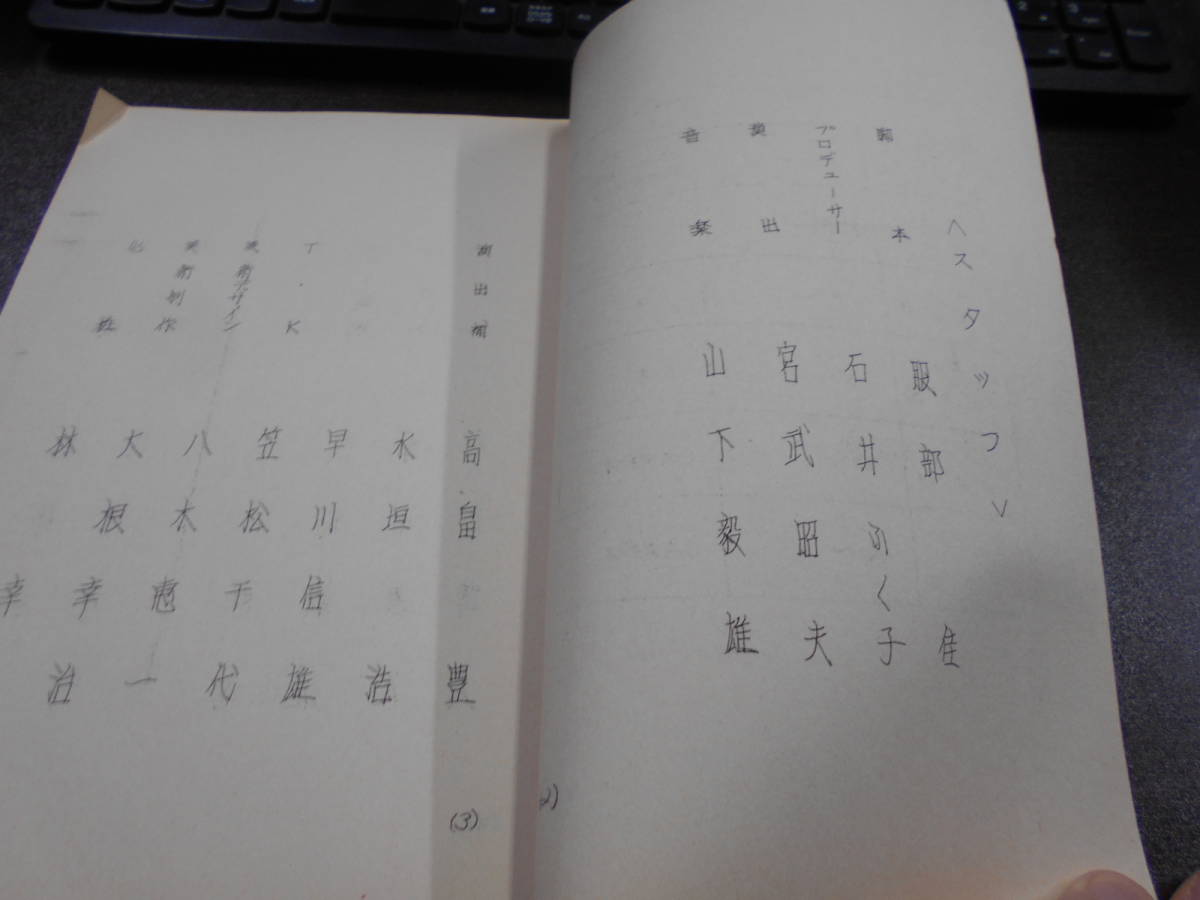 ＜スタッフ＞
脚本 服部佳
プロデューサー 石井ふく子
演出 宮武昭夫
音楽 山下毅雄
(2)
演出補 高畠豊
水垣浩
T・K 早川信雄
美術デザイン 笠松千代
美術制作 八木恵一
化粧 大根幸治
林幸
(3)